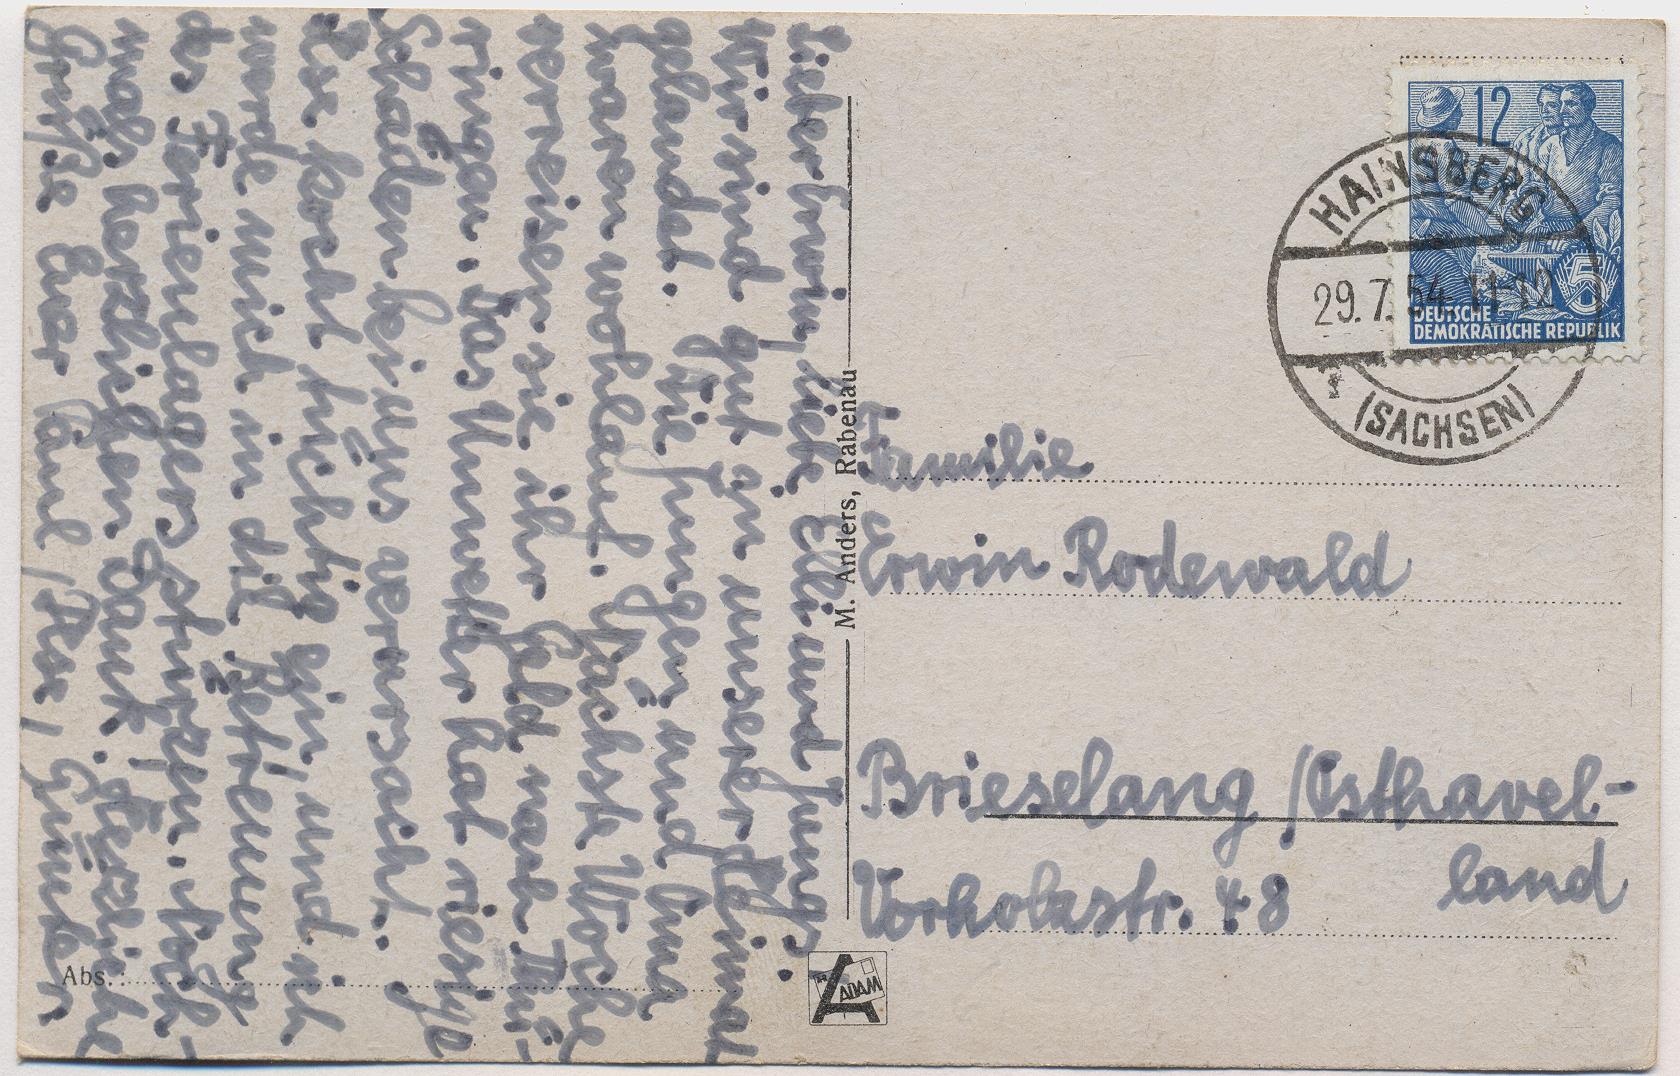 Lieber Erwin, liebe Elli und Jungs!
Wir sind gut in unser Heimat
gelandet. Die Jungen und Lina
waren wohlauf. Nächste Woche
verreisen sie ihr Geld nach Thü-
ringen. Das Unwetter hat riesige
Schäden bei uns verursacht.
kocht tüchtig ein, und ich
werde mich in die Betreuung
des Ferienlagers stürzen. Noch-
mals herzlichen Dank. Herzliche
Grüße Euer
Abs.:
M. Anders, Rabenau
ADAM
12
DEUTSCHE
DEMOKRATISCHE REPUBLIK
5
HAINSBERG
29.7.54 11-12
(SACHSEN)
Familie
Erwin Rodewald
Brieselang /Osthavel-
land
Vorholzstr. 48